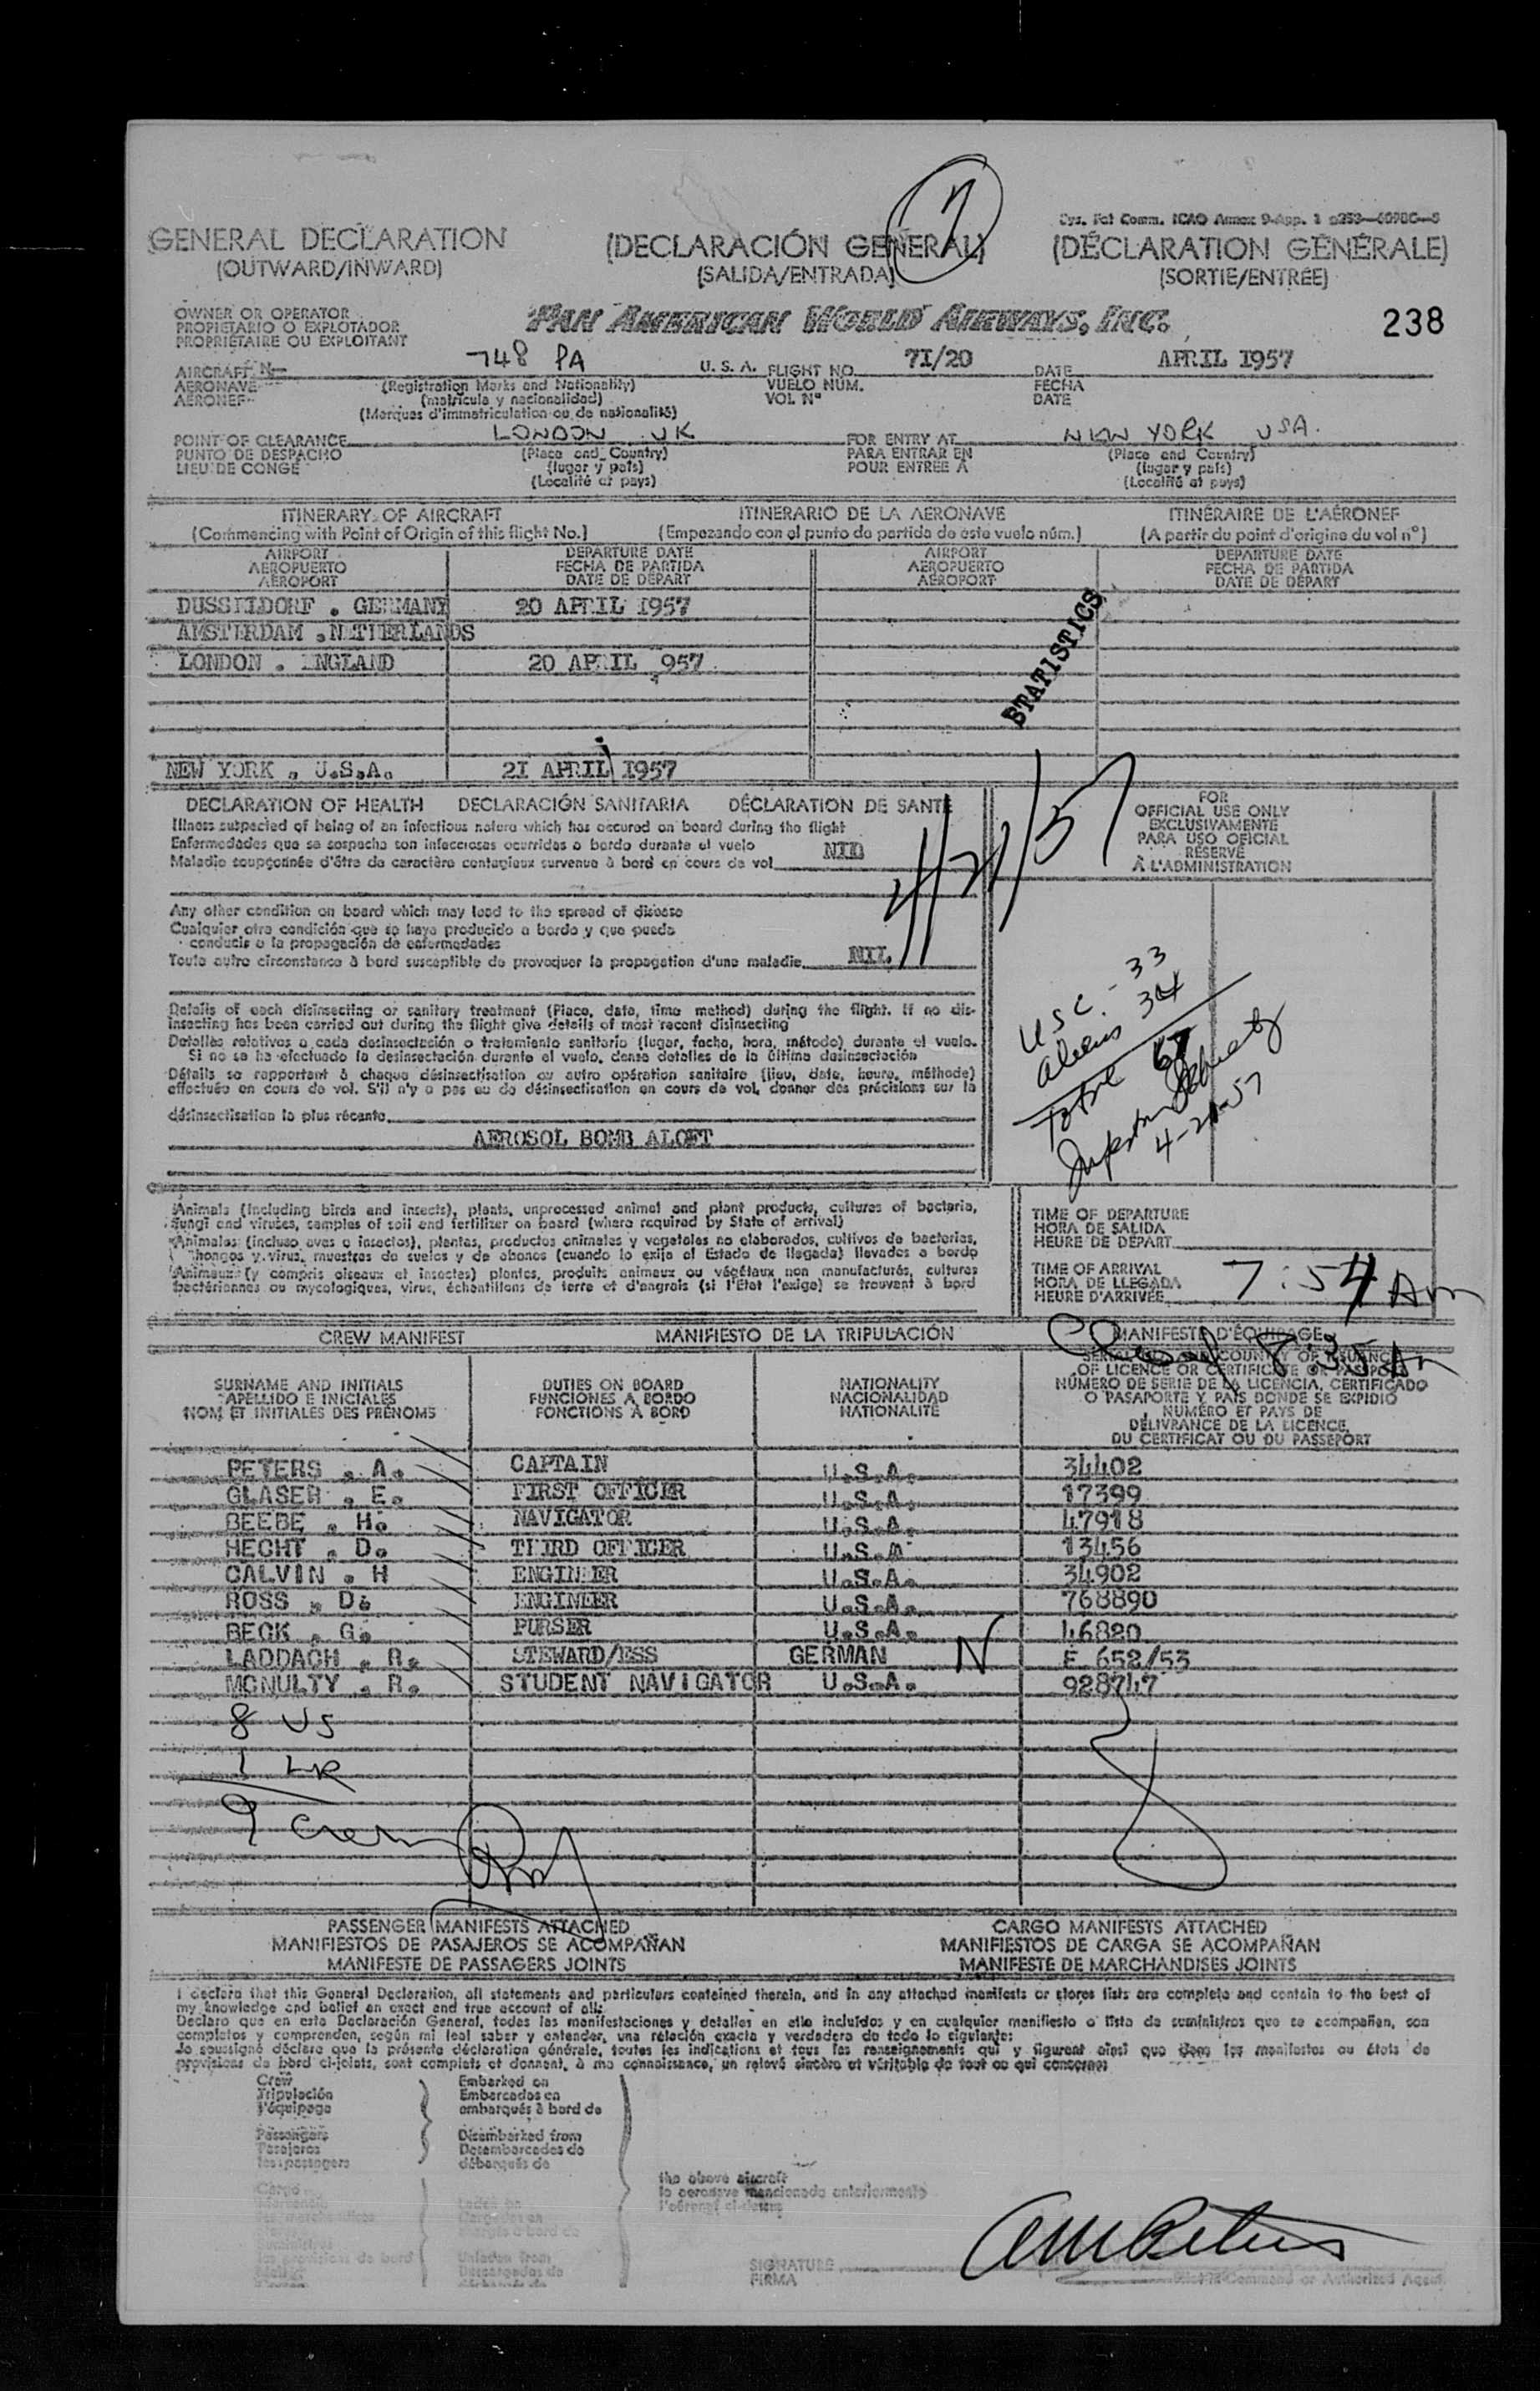 7
Sys. Fct Comm. ICAO Annex 9-App. 1
GENERAL DECLARATION (DECLARACIÓN GENERAL) (DÉCLARATION GÉNÉRALE)
(OUTWARD/INWARD) (SALIDA/ENTRADA) (SORTIE/ENTRÉE)
OWNER OR OPERATOR
PROPIETARIO O EXPLOTADOR
PROPRIÉTAIRE OU EXPLOITANT
PAN AMERICAN WORLD AIRWAYS, INC. 238
AIRCRAFT N 748 PA U. S. A. FLIGHT NO. 71/20 DATE APRIL 1957
AERONAVE (Registration Marks and Nationality) VUELO NÚM. FECHA
AÉRONEF (matrícula y nacionalidad) VOL Nº DATE
(Marques d'immatriculation ou de nationalité)
POINT OF CLEARANCE LONDON UK FOR ENTRY AT NEW YORK USA.
PUNTO DE DESPACHO (Place and Country) PARA ENTRAR EN (Place and Country)
LIEU DE CONGÉ (lugar y país) POUR ENTRÉE A (lugar y país)
(Localité et pays) (Localité et pays)
ITINERARY OF AIRCRAFT ITINERARIO DE LA AERONAVE ITINÉRAIRE DE L'AÉRONEF
(Commencing with Point of Origin of this flight No.) (Empezando con el punto de partida de este vuelo núm.) (A partir du point d'origine du vol nº)
AIRPORT DEPARTURE DATE AIRPORT DEPARTURE DATE
AEROPUERTO FECHA DE PARTIDA AEROPUERTO FECHA DE PARTIDA
AÉROPORT DATE DE DÉPART AÉROPORT DATE DE DÉPART
DUSSELDORF . GERMANY 20 APRIL 1957
AMSTERDAM . NETHERLANDS
LONDON . ENGLAND 20 APRIL 957
STATISTICS
NEW YORK . U.S.A. 21 APRIL 1957
4/21/57
DECLARATION OF HEALTH DECLARACIÓN SANITARIA DÉCLARATION DE SANTÉ
Illness suspected of being of an infectious nature which has occured on board during the flight
Enfermedades que se sospecha son infecciosas ocurridas a bordo durante el vuelo
Maladie soupçonnée d'être de caractère contagieux survenue à bord en cours de vol NIL
FOR
OFFICIAL USE ONLY
EXCLUSIVAMENTE
PARA USO OFICIAL
RÉSERVÉ
À L'ADMINISTRATION
Any other condition on board which may lead to the spread of disease
Cualquier otra condición que se haya producido a bordo y que pueda
conducir a la propagación de enfermedades
Toute autre circonstance à bord susceptible de provoquer la propagation d'une maladie NIL
USC. - 33
Aliens 34
Total 67
4-21-57
Details of each disinsecting or sanitary treatment (Place, date, time method) during the flight. If no dis-
insecting has been carried out during the flight give details of most recent disinsecting
Detalles relativos a cada desinsectación o tratamiento sanitario (lugar, fecha, hora, método) durante el vuelo.
Si no se ha efectuado la desinsectación durante el vuelo, dense detalles de la última desinsectación
Détails se rapportant à chaque désinsectisation ou autre opération sanitaire (lieu, date, heure, méthode)
effectuée en cours de vol. S'il n'y a pas eu de désinsectisation en cours de vol, donner des précisions sur la
désinsectisation la plus récente
AEROSOL BOMB ALOFT
Animals (including birds and insects), plants, unprocessed animal and plant products, cultures of bacteria,
fungi and viruses, samples of soil and fertilizer on board (where required by State of arrival)
Animales (incluso aves o insectos), plantas, productos animales y vegetales no elaborados, cultivos de bacterias,
hongos y virus, muestras de suelos y de abonos (cuando lo exija el Estado de llegada) llevados a bordo
Animaux (y compris oiseaux et insectes) plantes, produits animaux ou végétaux non manufacturés, cultures
bactériennes ou mycologiques, virus, échantillons de terre et d'engrais (si l'État l'exige) se trouvant à bord
TIME OF DEPARTURE
HORA DE SALIDA
HEURE DE DÉPART
TIME OF ARRIVAL
HORA DE LLEGADA 7:54 AM
HEURE D'ARRIVÉE
8:35 AM
CREW MANIFEST MANIFIESTO DE LA TRIPULACIÓN MANIFESTE D'ÉQUIPAGE
SURNAME AND INITIALS DUTIES ON BOARD NATIONALITY SERIAL NO. AND COUNTRY OF ISSUANCE
APELLIDO E INICIALES FUNCIONES A BORDO NACIONALIDAD OF LICENCE OR CERTIFICATE OR PASSPORT
NOM ET INITIALES DES PRÉNOMS FONCTIONS À BORD NATIONALITÉ NÚMERO DE SERIE DE LA LICENCIA, CERTIFICADO
O PASAPORTE Y PAÍS DONDE SE EXPIDIÓ
NUMÉRO ET PAYS DE
DÉLIVRANCE DE LA LICENCE,
DU CERTIFICAT OU DU PASSEPORT
PETERS . A. CAPTAIN U.S.A. 34402
GLASER . E. FIRST OFFICER U.S.A. 17399
BEEBE . H. NAVIGATOR U.S.A. 47918
HECHT . D. THIRD OFFICER U.S.A 13456
CALVIN . H ENGINEER U.S.A. 34902
ROSS . D. ENGINEER U.S.A. 768890
BECK . G. PURSER U.S.A. 46820
LADDACH . R. STEWARD/ESS GERMAN N E 652/53
MCNULTY . R. STUDENT NAVIGATOR U.S.A. 928747
8 US
1 LR
9 Crew
PASSENGER MANIFESTS ATTACHED CARGO MANIFESTS ATTACHED
MANIFIESTOS DE PASAJEROS SE ACOMPAÑAN MANIFIESTOS DE CARGA SE ACOMPAÑAN
MANIFESTE DE PASSAGERS JOINTS MANIFESTE DE MARCHANDISES JOINTS
I declare that this General Declaration, all statements and particulars contained therein, and in any attached manifests or stores lists are complete and contain to the best of
my knowledge and belief an exact and true account of all:
Declaro que en esta Declaración General, todas las manifestaciones y detalles en ella incluidos y en cualquier manifiesto o lista de suministros que se acompañan, son
completos y comprenden, según mi leal saber y entender, una relación exacta y verdadera de todo lo siguiente:
Je soussigné déclare que la présente déclaration générale, toutes les indications et tous les renseignements qui y figurent ainsi que dans les manifestes ou états de
provisions de bord ci-joints, sont complets et donnent, à ma connaissance, un relevé sincère et véritable de tout ce qui concerne:
Crew Embarked on
Tripulación Embarcados en
l'équipage embarqués à bord de
Passengers Disembarked from
Pasajeros Desembarcados de
les passagers débarqués de
the above aircraft
la aeronave mencionada anteriormente
l'aéronef ci-dessus
Cargo
Laden on
Cargados en
les provisions de bord Unladen from
Descargados de
SIGNATURE AM Peters
FIRMA Pilot in Command or Authorized Agent